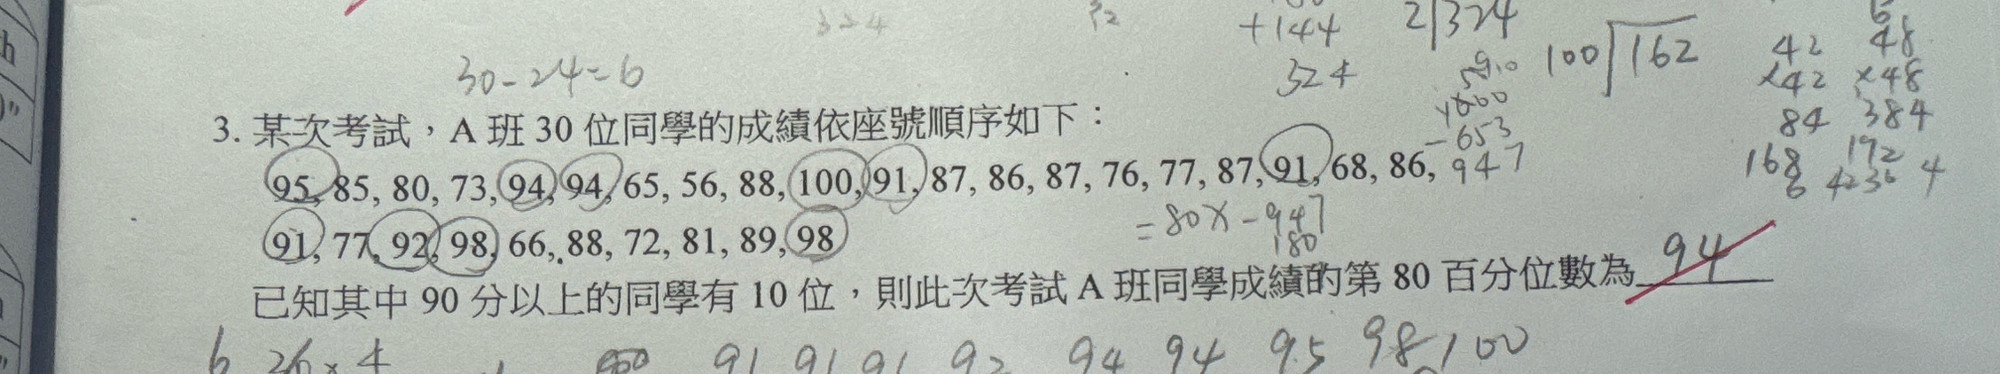 324
+144
324
2)324
100)162
42
×42
84
168
48
×48
384
192
30-24=6
3. 某次考試，A 班 30 位同學的成績依座號順序如下：
95, 85, 80, 73, 94, 94, 65, 56, 88, 100, 91, 87, 86, 87, 76, 77, 87, 91, 68, 86,
-653
947
=80x-947
180
91, 77, 92, 98, 66, 88, 72, 81, 89, 98
已知其中 90 分以上的同學有 10 位，則此次考試 A 班同學成績的第 80 百分位數為 94
6 26×4
91 91 91 92 94 94 95 98 100